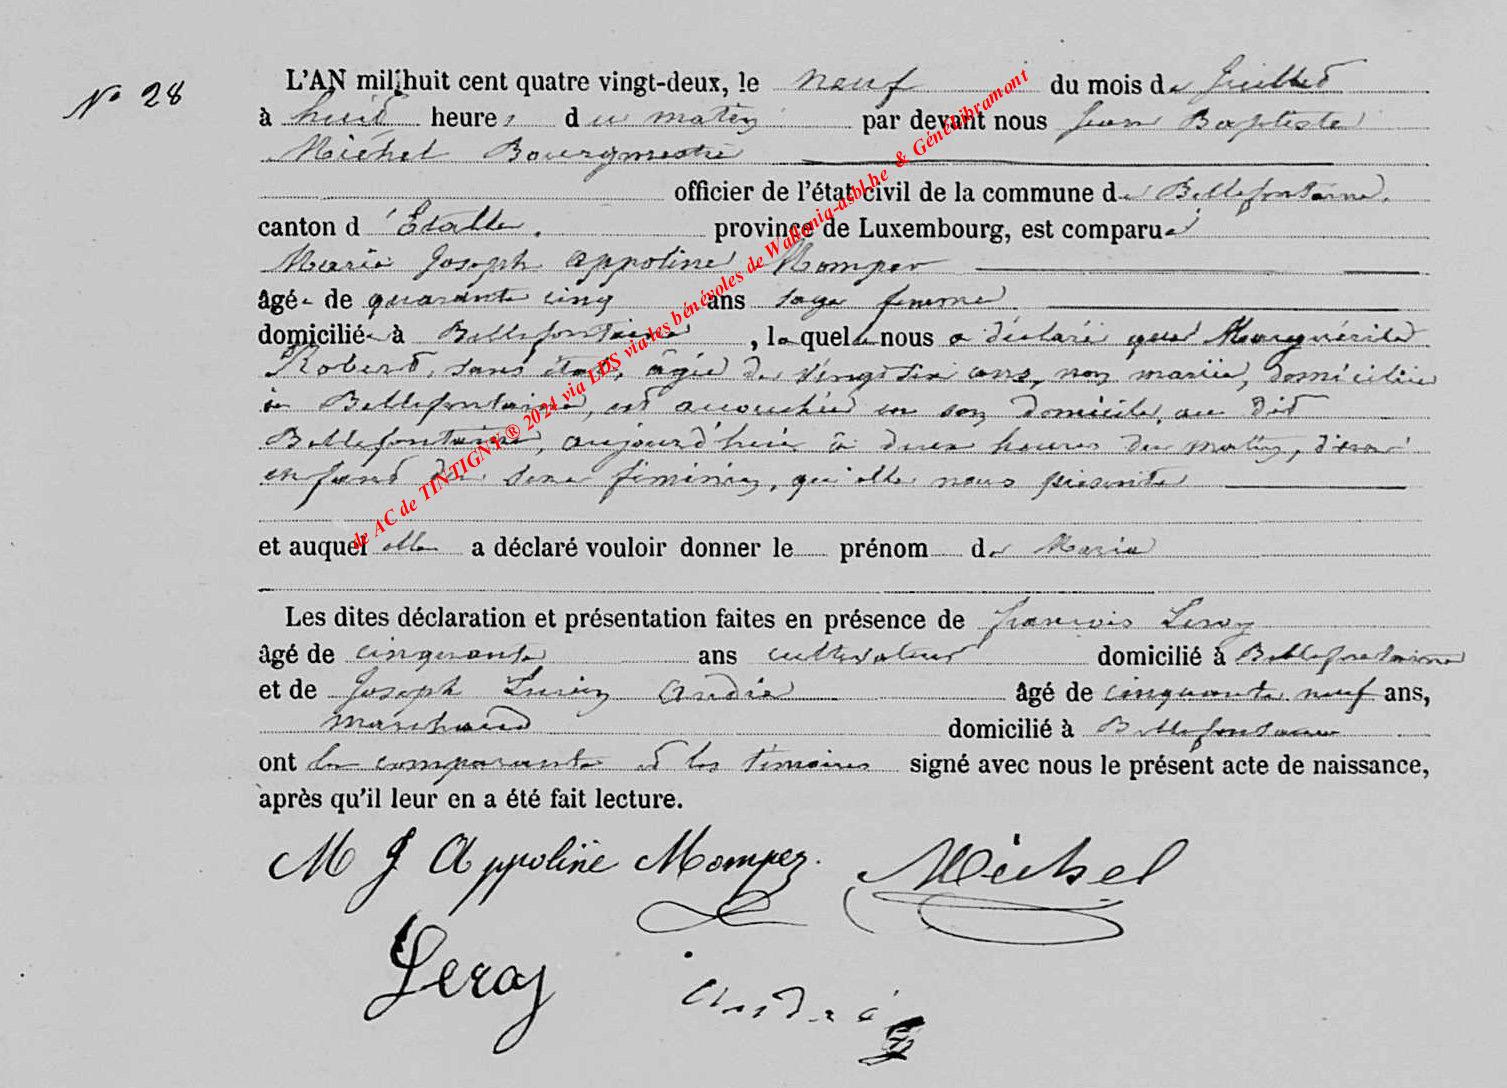 N° 28
L'AN mil huit cent quatre vingt-deux, le neuf du mois de Juillet
à huit heures du matin par devant nous Jean Baptiste
Michel Bourgmestre
officier de l'état civil de la commune de Bellefontaine,
canton d'Etalle. province de Luxembourg, est comparue
Marie Joseph Appoline
âgée de quarante cinq ans sage femme
domiciliée à Bellefontaine, laquelle nous a déclaré que Marguérite
Robert, sans état, âgée de vingt six ans, non mariée, domiciliée
à Bellefontaine, est accouchée en son domicile, au dit
Bellefontaine, aujourd'hui à deux heures du matin, d'un
enfant du sexe féminin, qu'elle nous présente
et auquel elle a déclaré vouloir donner le prénom de Maria
Les dites déclaration et présentation faites en présence de François Leroy
âgé de cinquante ans cultivateur domicilié à Bellefontaine
et de Joseph Lucien André âgé de cinquante neuf ans,
marchand domicilié à Bellefontaine
ont la comparante et les témoins signé avec nous le présent acte de naissance,
après qu'il leur en a été fait lecture.
M J Appoline Michel
Leroy André
de AC de TINTIGNY® 2024 via LDS via les bénévoles de Wallonia-asblhe & Généalibramont